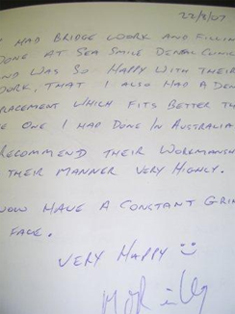 22/8/07
I HAD BRIDGE WORK AND FILLIN
DONE AT SEA SMILE DENTAL CLINIC
AND WAS SO HAPPY WITH THEIR
WORK, THAT I ALSO HAD A DEN
RACEMENT WHICH FITS BETTER TH
E ONE I HAD DONE IN AUSTRALIA
RECOMMEND THEIR WORKMANSH
THEIR MANNER VERY HIGHLY.
NOW HAVE A CONSTANT GRIN
FACE.
VERY HAPPY